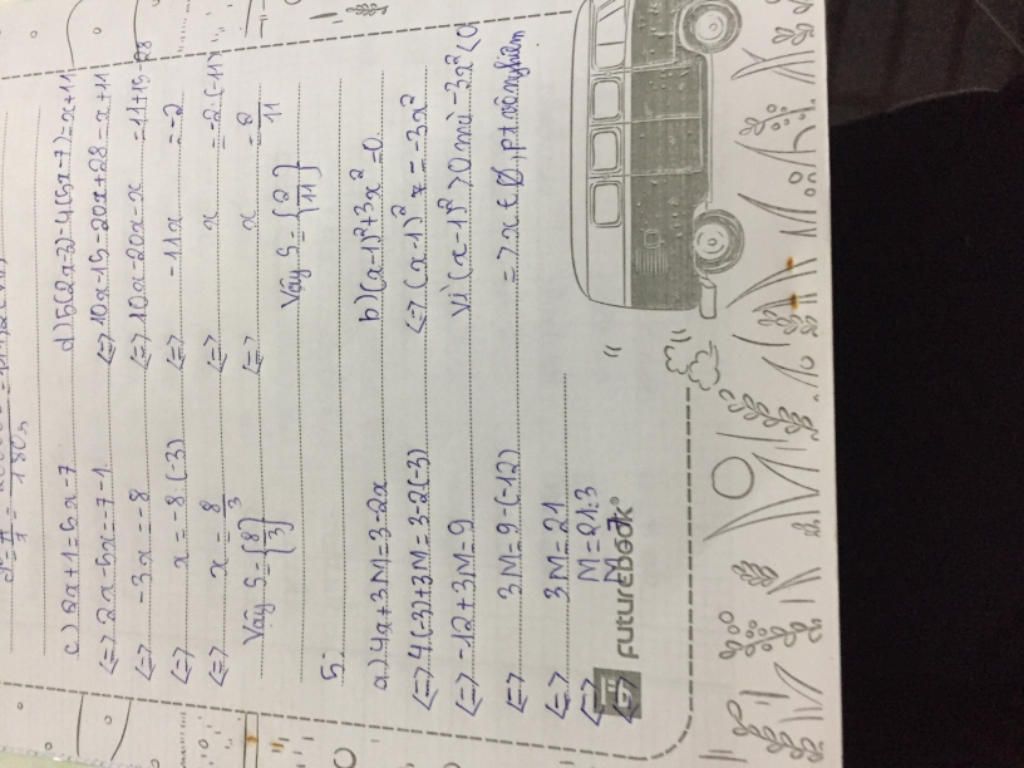 180,
c) 2x+1=5x-7
(=) 2x-5x=-7-1
(=) -3x=-8
(=) x=-8:(-3)
(=) x=8/3
Vậy S={8/3}
d) 5(2x-3)-4(5x-7)=x+11
(=) 10x-15-20x+28=x+11
(=) 10x-20x-x=11+15-28
(=) -11x=-2
(=) x=-2:(-11)
(=) x=2/11
Vậy S={2/11}
5:
a) 4x+3M=3-2x
(=) 4(-3)+3M=3-2(-3)
(=) -12+3M=9
(=) 3M=9-(-12)
(=) 3M=21
(=) M=21:3
(=) M=7
b) (x-1)²+3x²=0
(=) (x-1)² = -3x²
Vì (x-1)²>0 mà -3x²<0
=> x ∈ Ø, pt vô nghiệm
FUTUREBOOK®